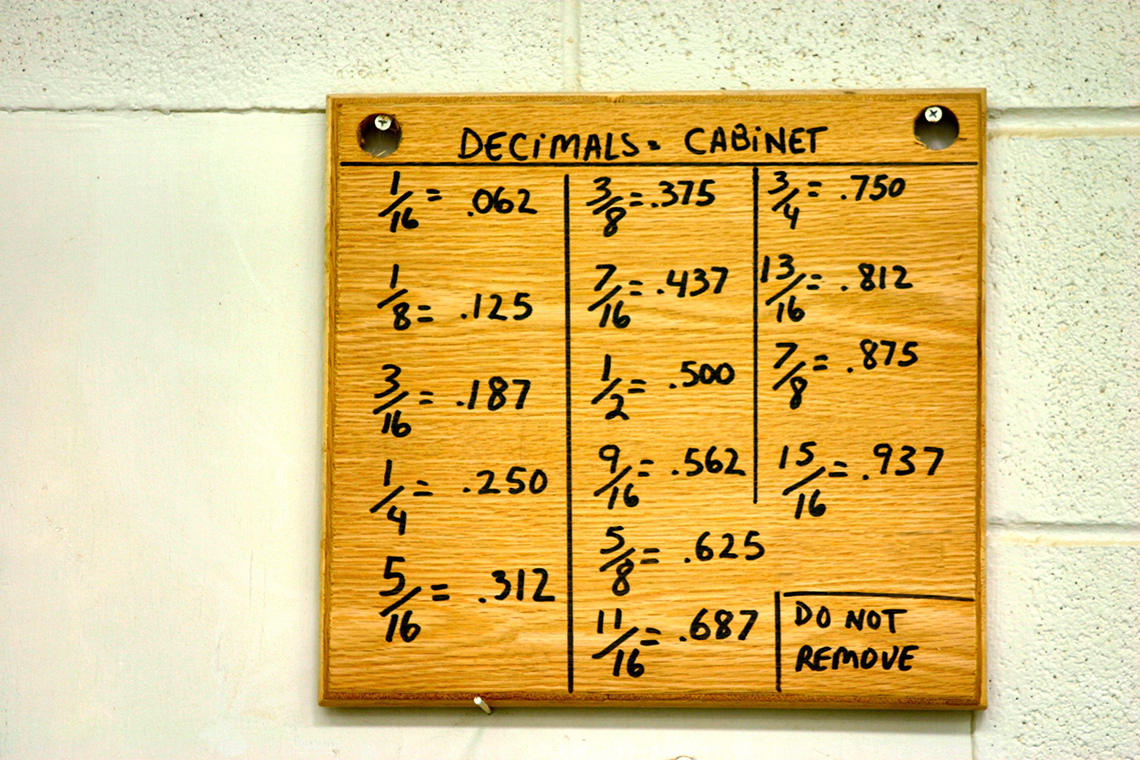 DECiMALS. CABiNET
1/16 = .062
1/8 = .125
3/16 = .187
1/4 = .250
5/16 = .312
3/8 = .375
7/16 = .437
1/2 = .500
9/16 = .562
5/8 = .625
11/16 = .687
3/4 = .750
13/16 = .812
7/8 = .875
15/16 = .937
DO NOT
REMOVE